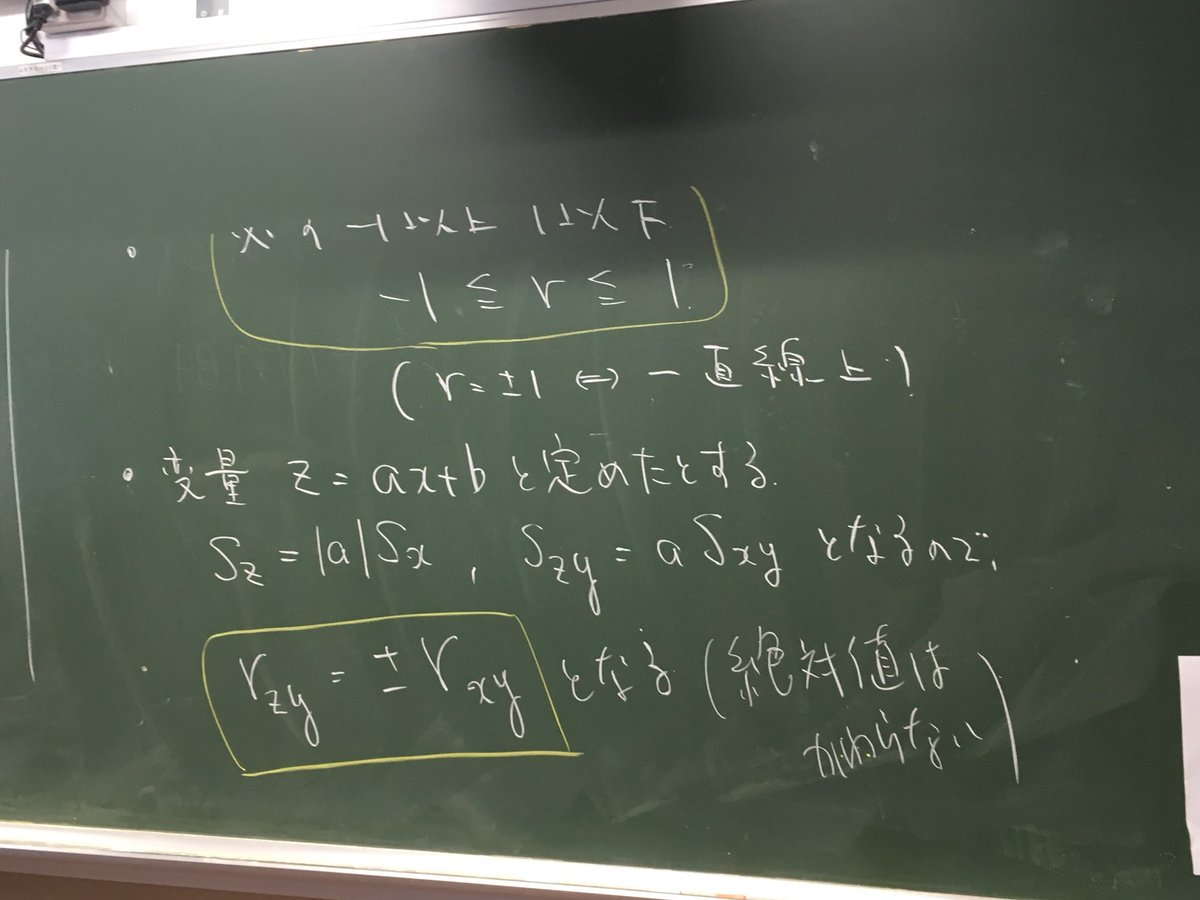 ・ 必ず -1以上 1以下
-1 ≦ r ≦ 1
(r=±1 ⇔ 一直線上)
・変量 z=ax+b と定めたとする.
Sz=|a|Sx , Szy=aSxy となるので,
rzy=±rxy となる (絶対値は
かわらない)